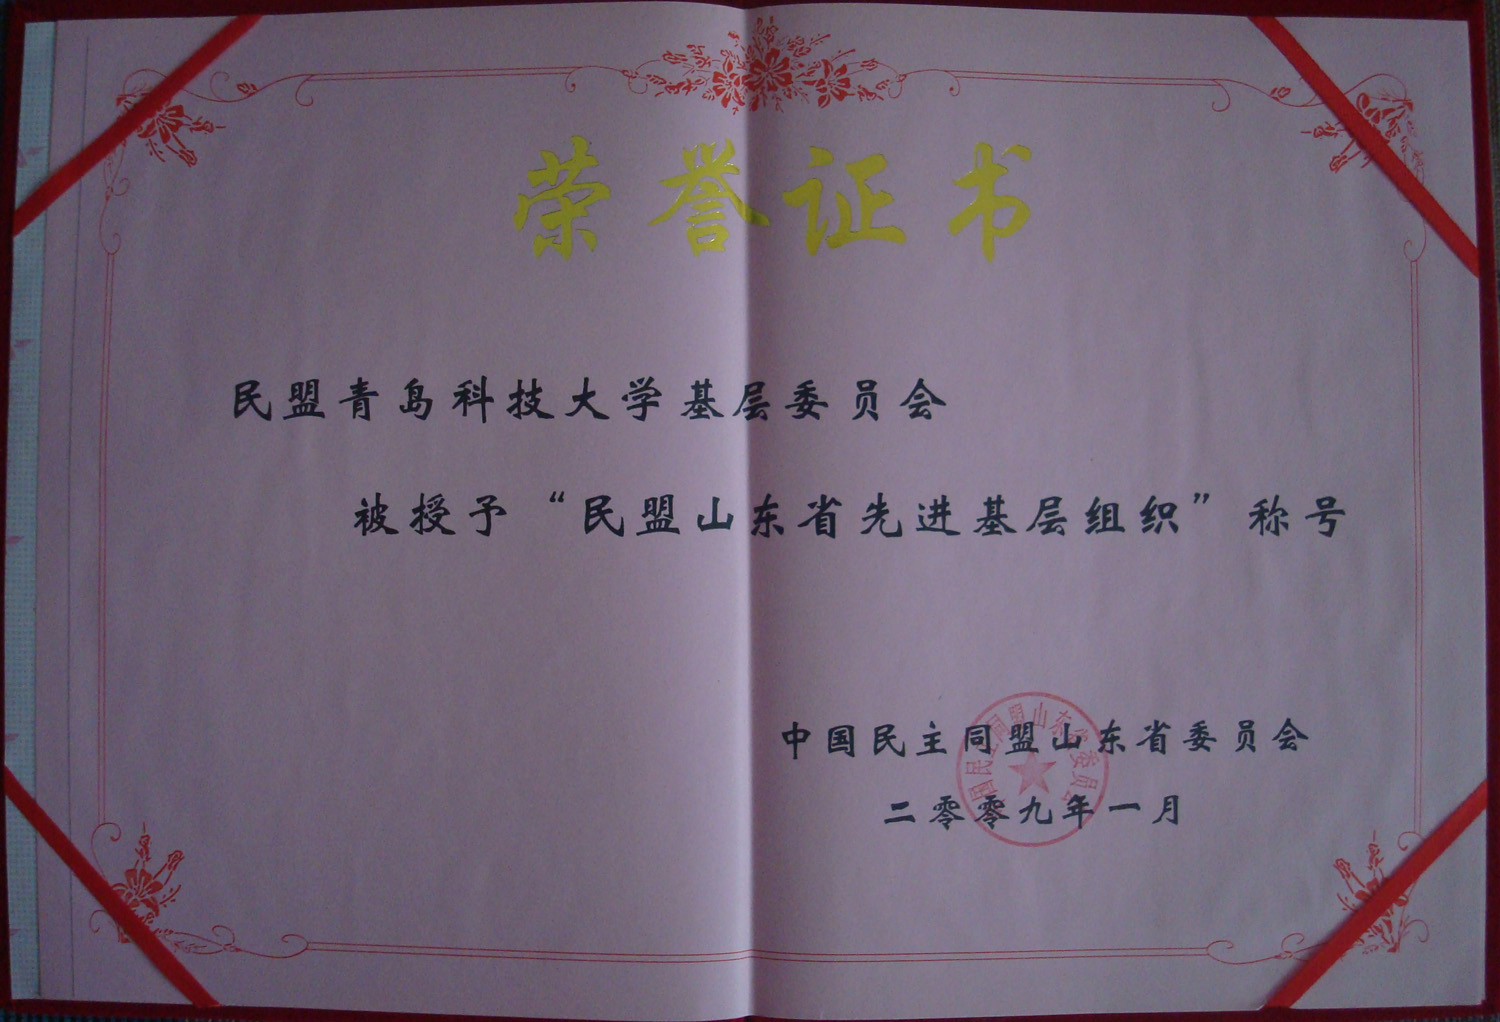 荣誉证书
民盟青岛科技大学基层委员会
被授予“民盟山东省先进基层组织”称号
中国民主同盟山东省委员会
二零零九年一月
国民主同盟山东省委员